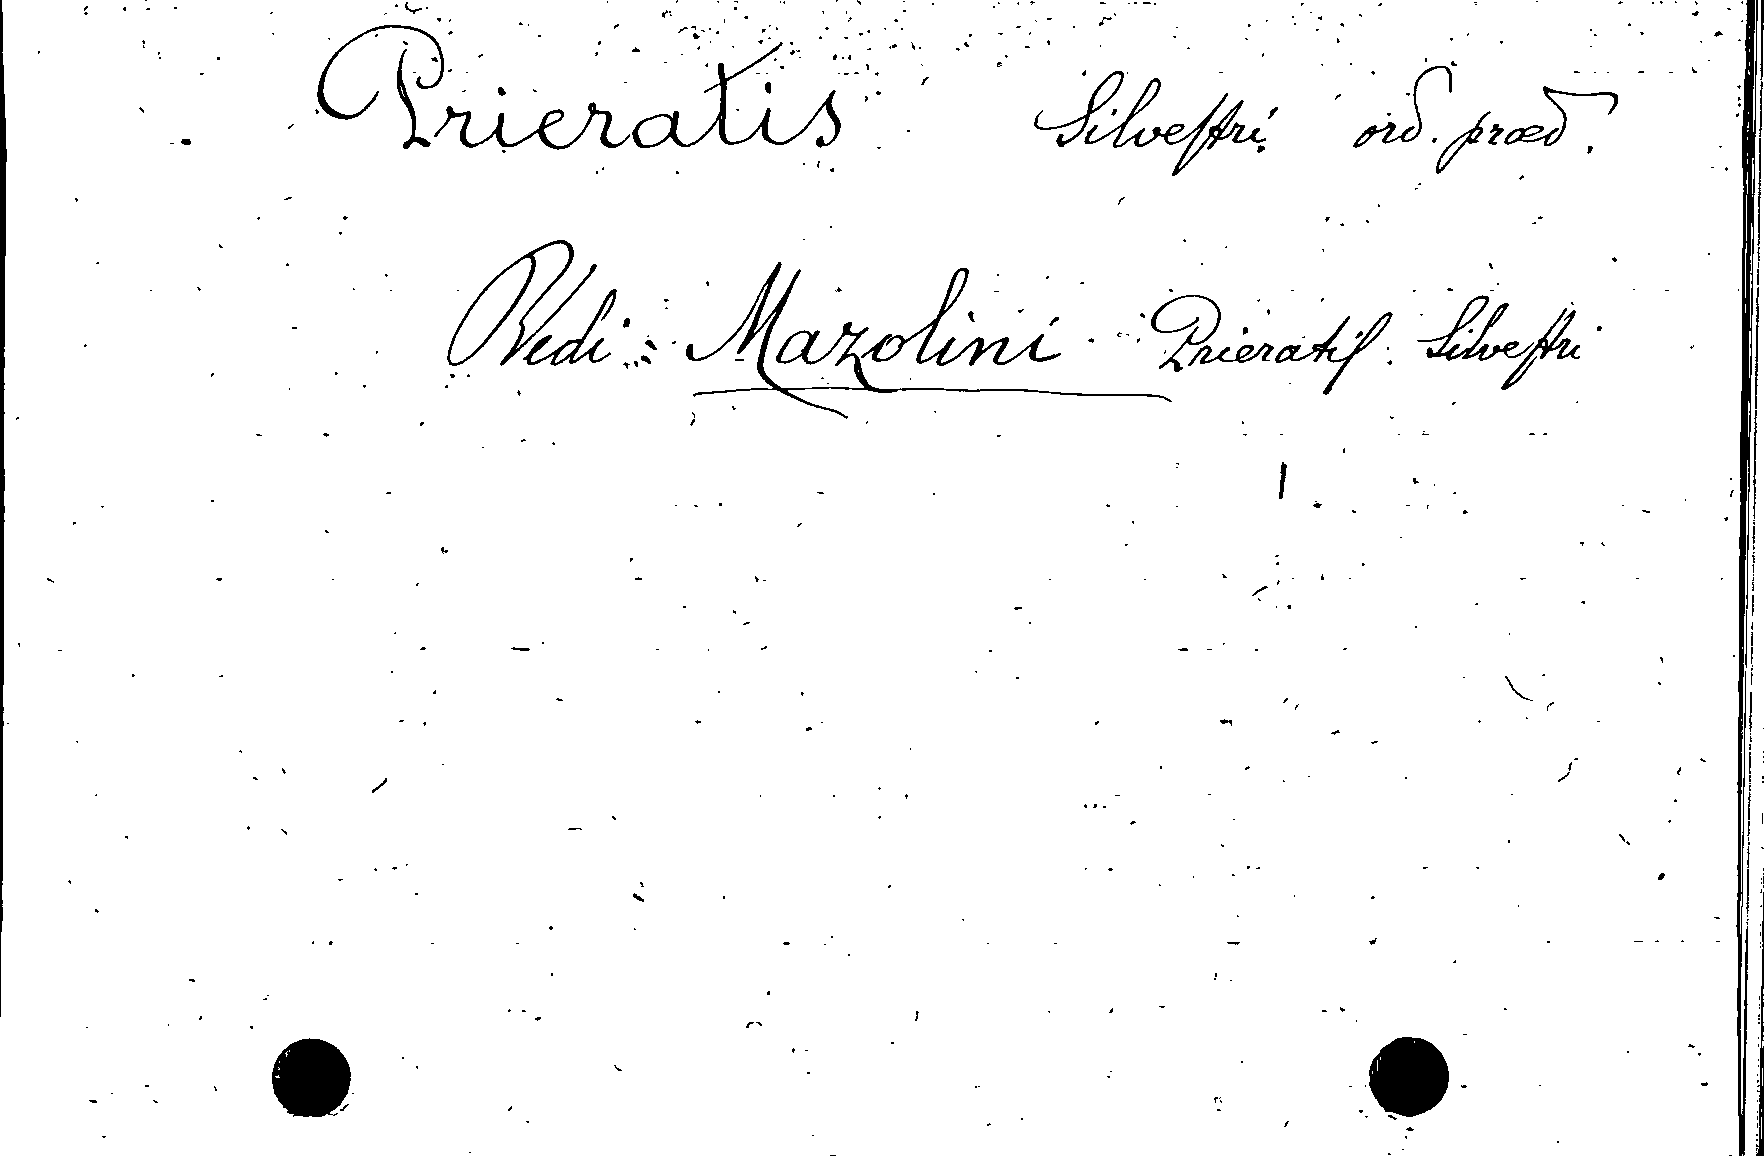 Prieratis Silvestri. ord. præd.
Vedi: Mazolini Prieratis. Silvestri